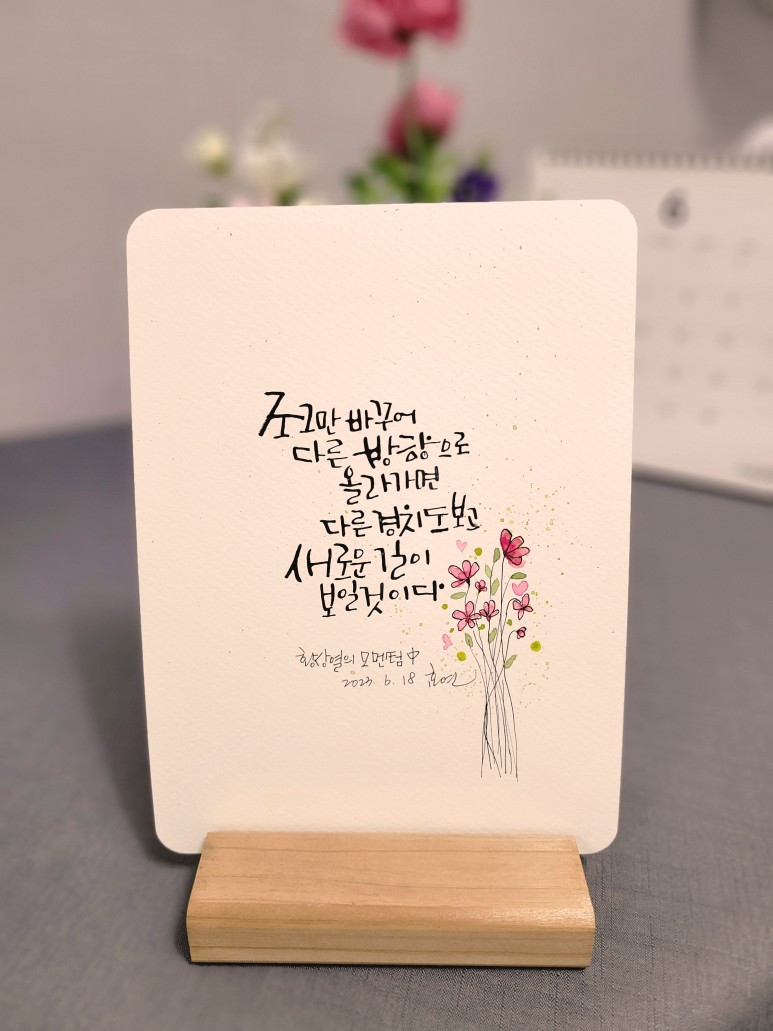 6
조그만 바꾸어
다른 방향으로
올라가면
다른 경치도 보고
새로운 길이
보일것이다
황상열의 모멘텀 中
2023. 6. 18 효연